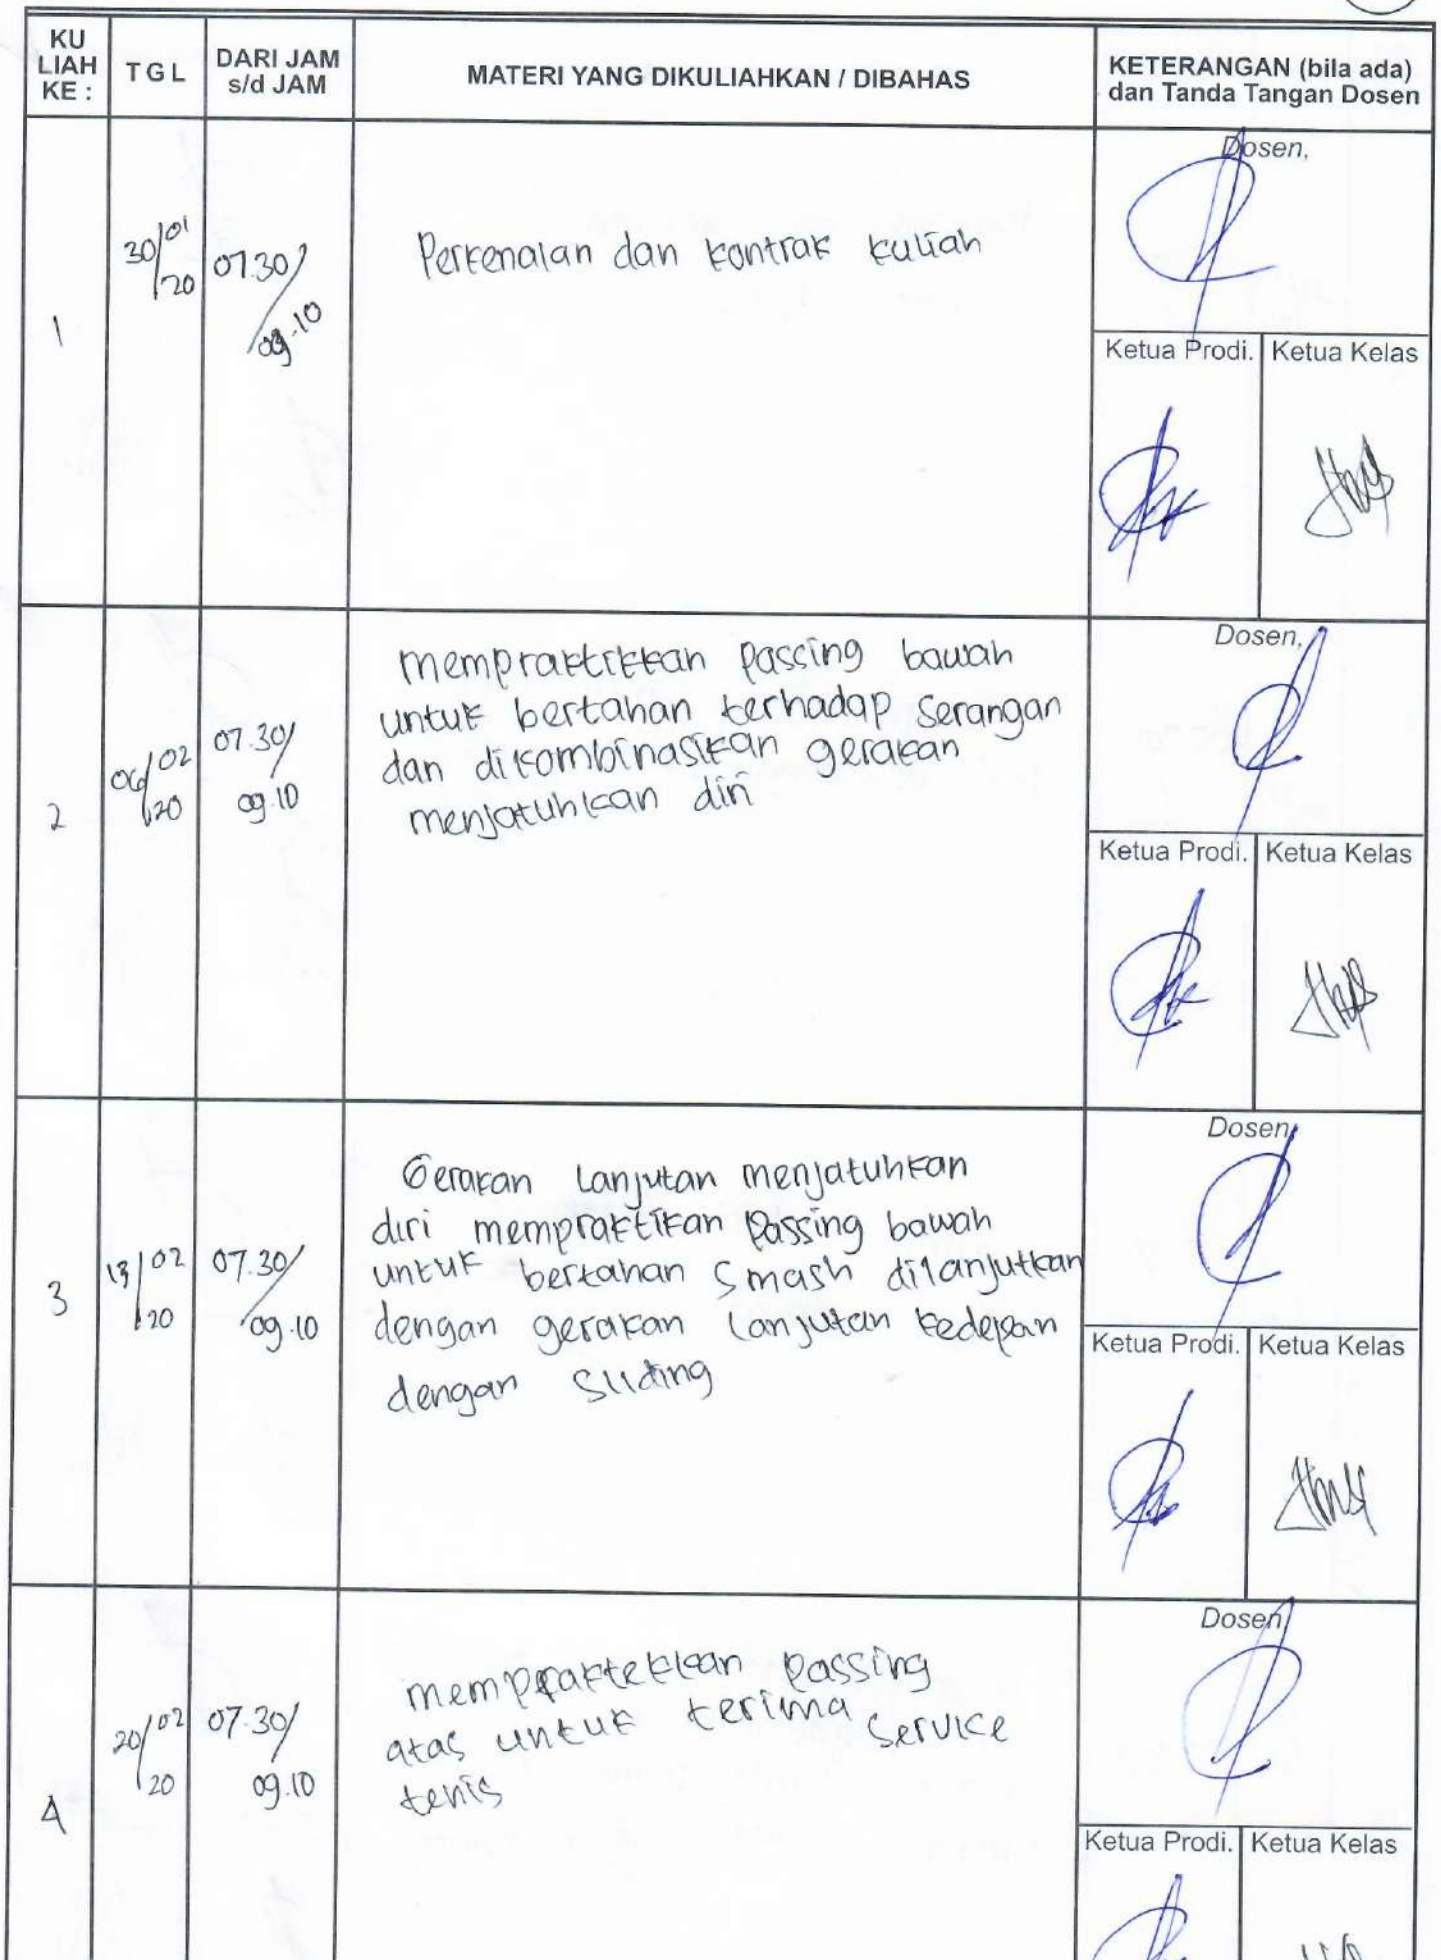 KU
LIAH
KE :
TGL
DARI JAM
s/d JAM
MATERI YANG DIKULIAHKAN / DIBAHAS
KETERANGAN (bila ada)
dan Tanda Tangan Dosen
1
30/01
/20
07.30/
09.10
Perkenalan dan kontrak kuliah
Dosen,
Ketua Prodi. Ketua Kelas
2
06/02
/20
07.30/
09.10
mempraktikkan passing bawah
untuk bertahan terhadap serangan
dan dikombinasikan gerakan
menjatuhkan diri
Dosen,
Ketua Prodi. Ketua Kelas
3
13/02
/20
07.30/
09.10
Gerakan lanjutan menjatuhkan
diri mempraktikan passing bawah
untuk bertahan smash dilanjutkan
dengan gerakan lanjutan kedepan
dengan sliding
Dosen,
Ketua Prodi. Ketua Kelas
4
20/02
/20
07.30/
09.10
mempraktekkan passing
atas untuk terima service
tenis
Dosen,
Ketua Prodi. Ketua Kelas